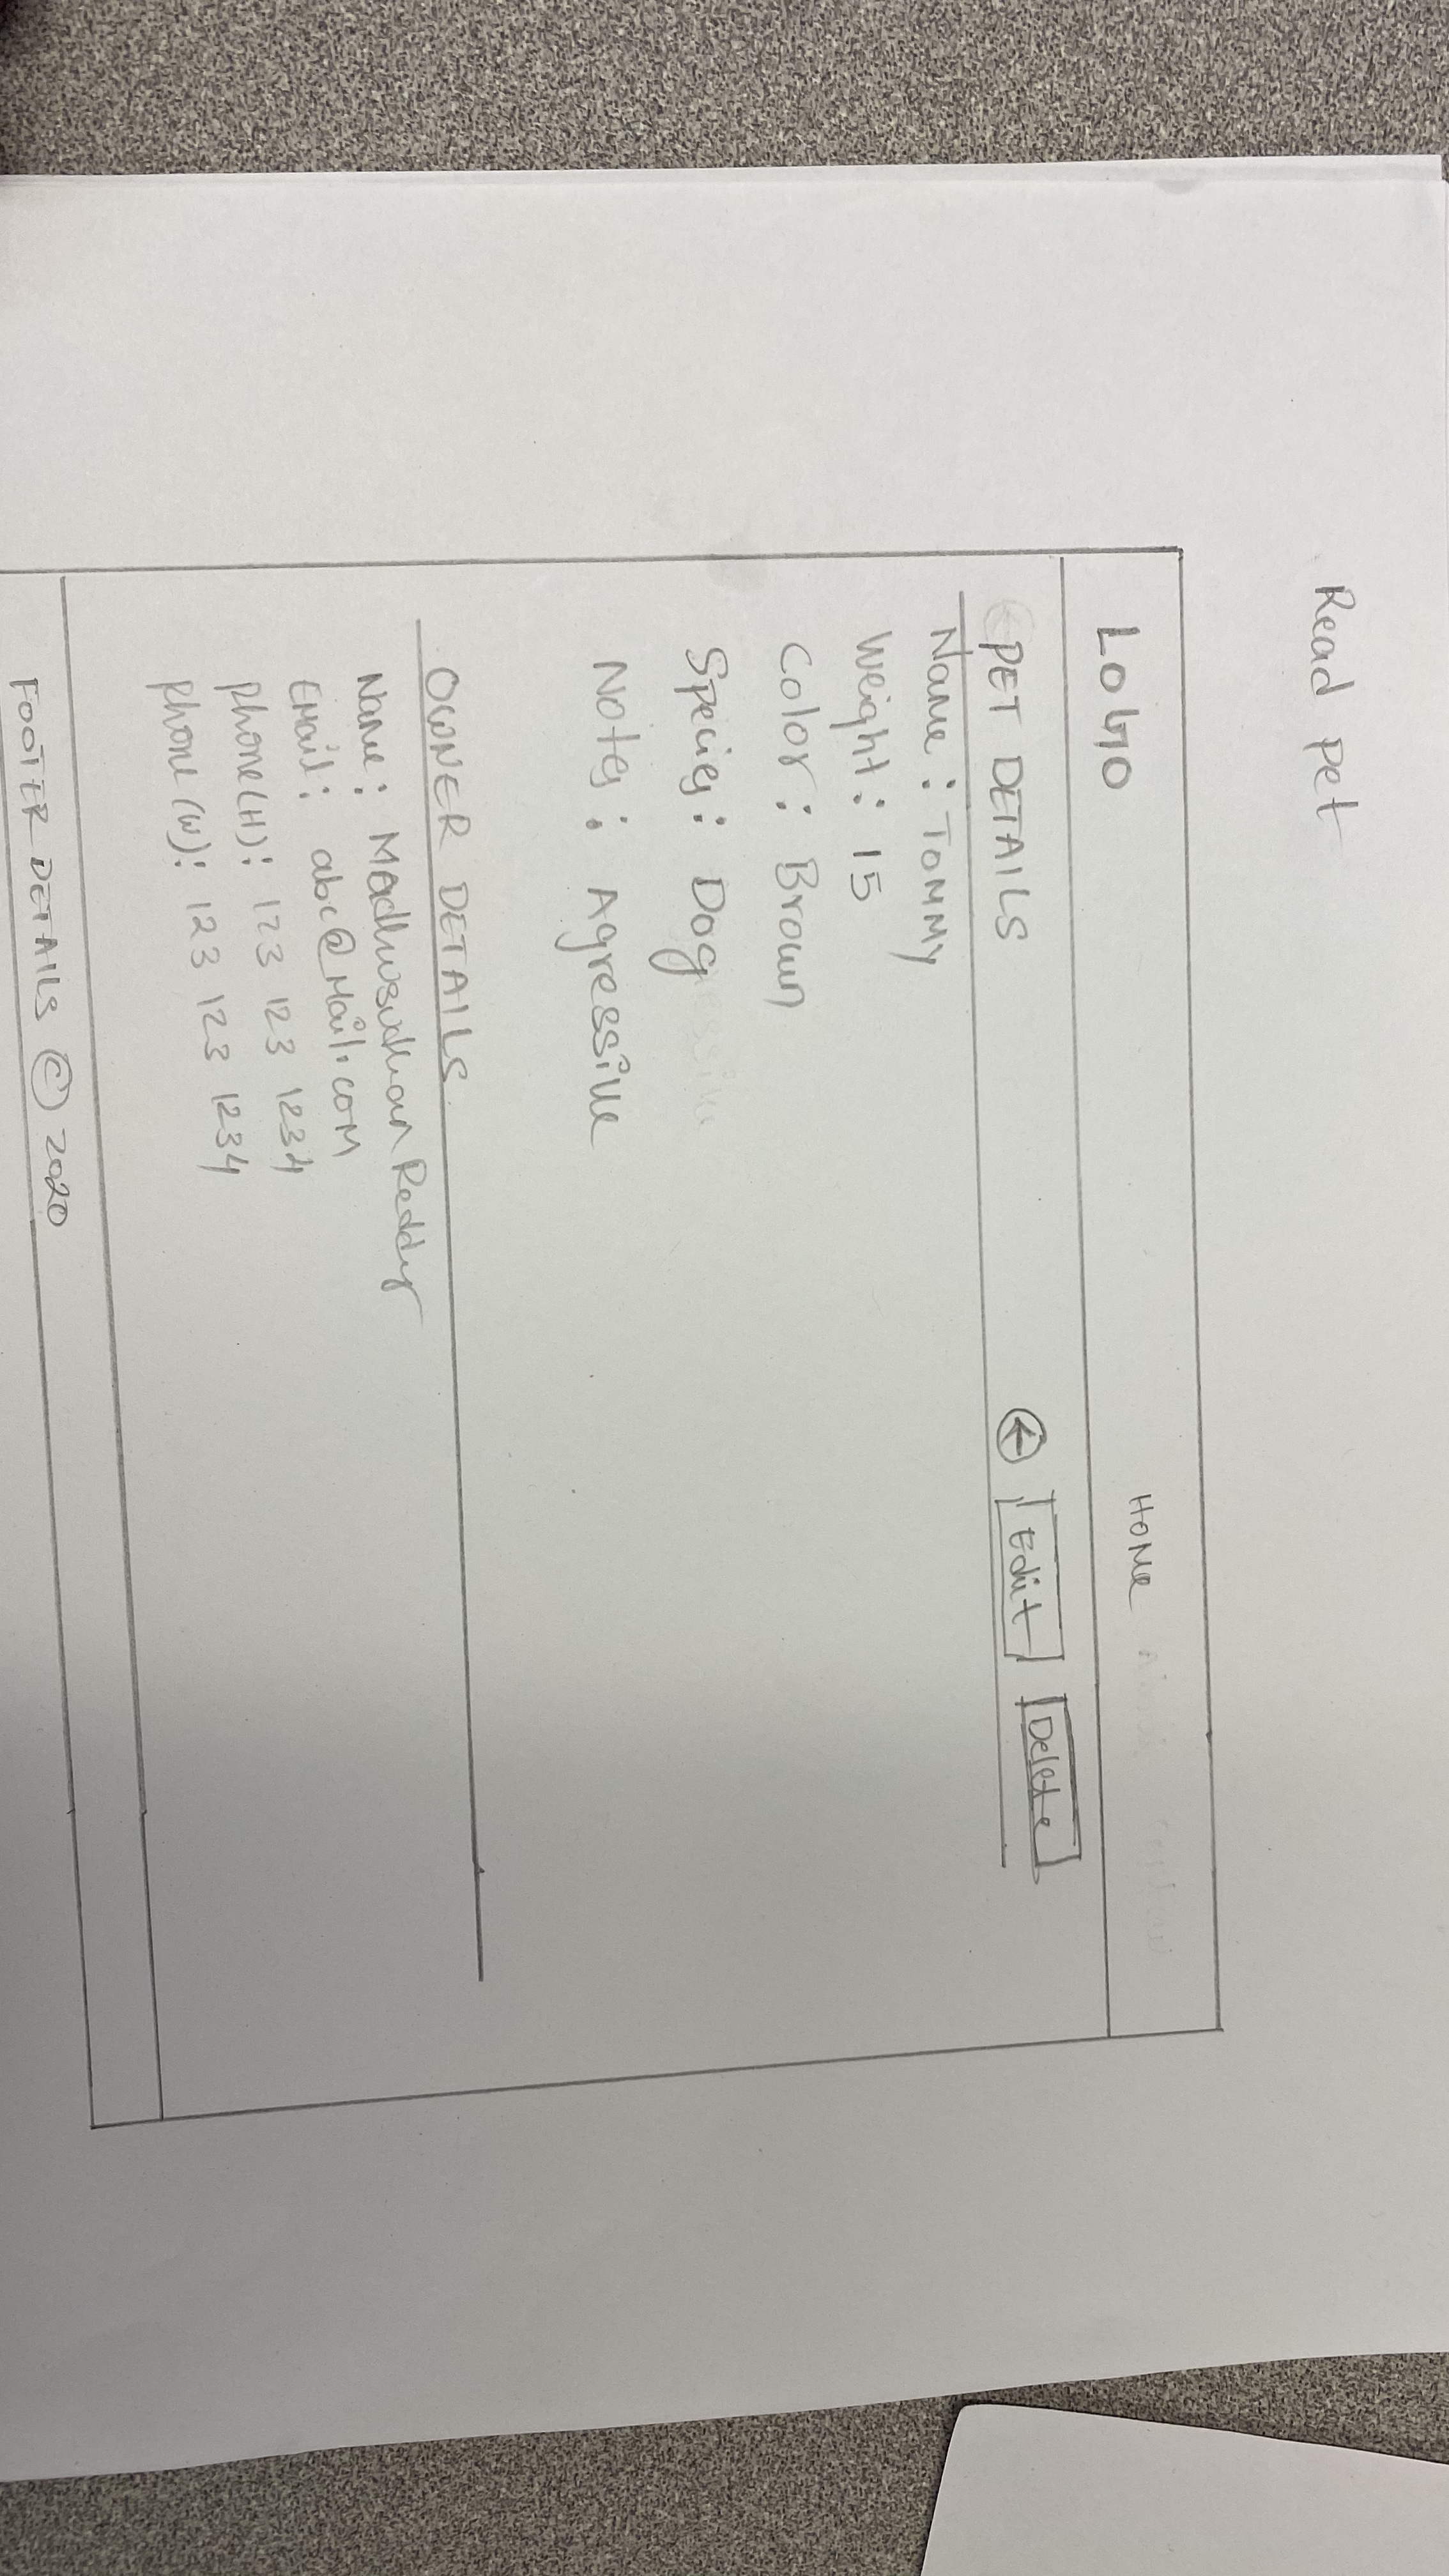 Read pet
LOGO HOME
PET DETAILS Edit Delete
Name : TOMMY
Weight : 15
Color : Brown
Species : Dog
Notes : Agressive
OWNER DETAILS
Name : Madhusudhan Reddy
Email : abc@Mail.com
Phone (H) : 123 123 1234
Phone (W) : 123 123 1234
FOOTER DETAILS © 2020